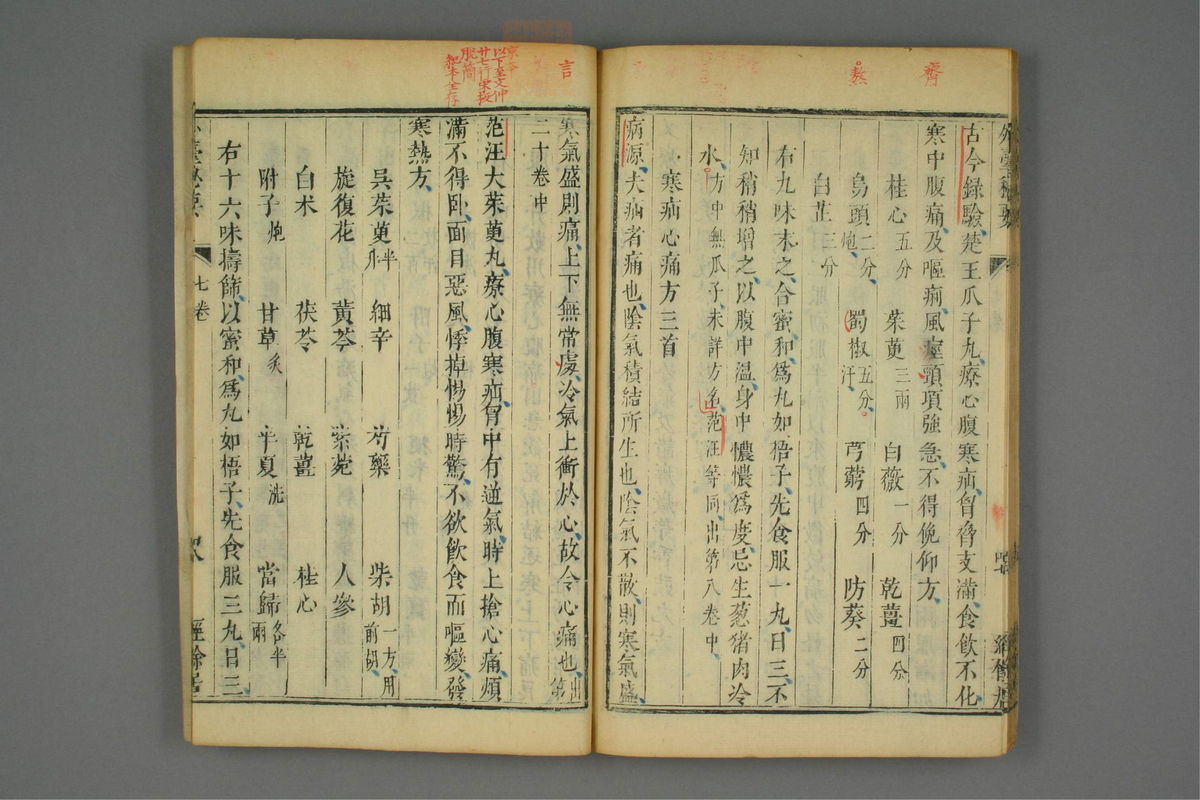 齊
熬
古今錄驗楚王瓜子丸療心腹寒疝胷脅支滿食飲不化
寒中腹痛及嘔痢風痙頸項強急不得俛仰方
桂心五分 茱萸三兩 白薇一分 乾薑四分
烏頭二分炮 蜀椒五分汗 芎藭四分 防葵二分
白芷三分
右九味末之合蜜和爲丸如梧子先食服一丸日三不
知稍稍增之以腹中溫身中懹懹爲度忌生葱猪肉冷
水方中無瓜子未詳方名范汪等同出第八卷中
寒疝心痛方三首
病源夫疝者痛也陰氣積結所生也陰氣不散則寒氣盛
言
以下至文仲
廿七行宋板
脫簡
寒氣盛則痛上下無常處冷氣上衝於心故令心痛也出第
二十卷中
范汪大茱萸丸療心腹寒疝胷中有逆氣時上搶心痛煩
滿不得卧面目惡風悸掉惕惕時驚不欲飲食而嘔變發
寒熱方
吳茱萸半升 細辛 芍藥 柴胡一方用前胡
旋復花 黃芩 紫菀 人參
白术 茯苓 乾薑 桂心
附子炮 甘草炙 半夏洗 當歸各半兩
右十六味擣篩以蜜和爲丸如梧子先食服三丸日三
七卷
經餘居